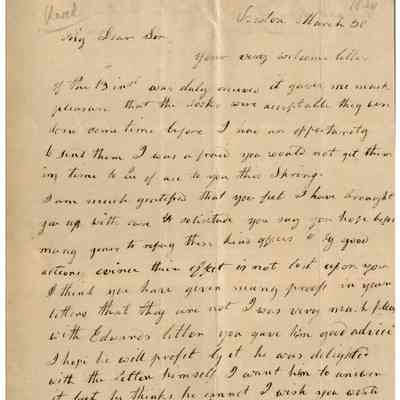 March 30
My Dear Son
Your very welcome letter
of the inst was duly received it gave me much
pleasure that the socks were acceptable they were
done some time before I saw an opportunity
to send them I was afraid you would not get them
in time to be of use to you this Spring.
I am much gratified that you feel I have brought
you up with care & solicitude you say you hope before
many years to repay these kind offices by good
actions evince their effect is not lost upon you
I think you have given many proofs in your
letters that they are not I was very much pleased
with Edwards letter you gave him good advice
I hope he will profit by it he was delighted
with the letter himself I want him to answer
it but he thinks he cannot I wish you would